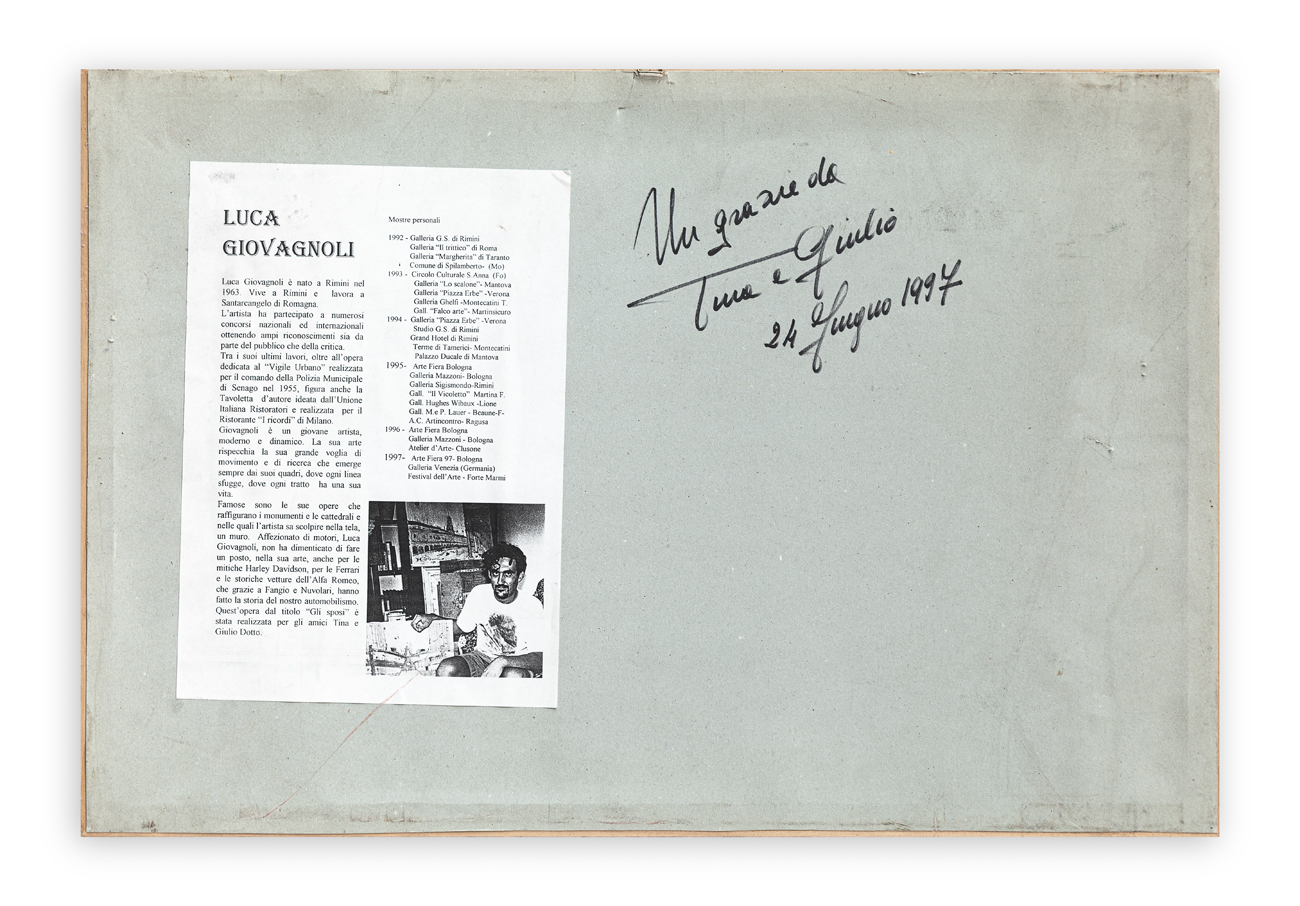 LUCA
GIOVAGNOLI
Luca Giovagnoli è nato a Rimini nel
1963. Vive a Rimini e lavora a
Santarcangelo di Romagna.
L'artista ha partecipato a numerosi
concorsi nazionali ed internazionali
ottenendo ampi riconoscimenti sia da
parte del pubblico che della critica.
Tra i suoi ultimi lavori, oltre all'opera
dedicata al "Vigile Urbano" realizzata
per il comando della Polizia Municipale
di Senago nel 1955, figura anche la
Tavoletta d'autore ideata dall'Unione
Italiana Ristoratori e realizzata per il
Ristorante "I ricordi" di Milano.
Giovagnoli è un giovane artista,
moderno e dinamico. La sua arte
rispecchia la sua grande voglia di
movimento e di ricerca che emerge
sempre dai suoi quadri, dove ogni linea
sfugge, dove ogni tratto ha una sua
vita.
Famose sono le sue opere che
raffigurano i monumenti e le cattedrali e
nelle quali l'artista sa scolpire nella tela,
un muro. Affezionato di motori, Luca
Giovagnoli, non ha dimenticato di fare
un posto, nella sua arte, anche per le
mitiche Harley Davidson, per le Ferrari
e le storiche vetture dell'Alfa Romeo,
che grazie a Fangio e Nuvolari, hanno
fatto la storia del nostro automobilismo.
Quest'opera dal titolo "Gli sposi" è
stata realizzata per gli amici Tina e
Giulio Dotto.
Mostre personali
1992 - Galleria G.S. di Rimini
Galleria "Il trittico" di Roma
Galleria "Margherita" di Taranto
Comune di Spilamberto- (Mo)
1993 - Circolo Culturale S.Anna (Fo)
Galleria "Lo scalone"- Mantova
Galleria "Piazza Erbe" -Verona
Galleria Ghelfi -Montecatini T.
Gall. "Falco arte"- Martinsicuro
1994 - Galleria "Piazza Erbe" -Verona
Studio G.S. di Rimini
Grand Hotel di Rimini
Terme di Tamerici- Montecatini
Palazzo Ducale di Mantova
1995- Arte Fiera Bologna
Galleria Mazzoni- Bologna
Galleria Sigismondo-Rimini
Gall. "Il Vicoletto" Martina F.
Gall. Hughes Wibaux -Lione
Gall. M.e P. Lauer - Beaune-F-
A.C. Artincontro- Ragusa
1996 - Arte Fiera Bologna
Galleria Mazzoni - Bologna
Atelier d'Arte- Clusone
1997- Arte Fiera 97- Bologna
Galleria Venezia (Germania)
Festival dell'Arte - Forte Marmi
Un grazie da
Tina e Giulio
24 Giugno 1997